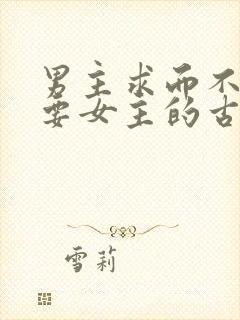 男主求而不
要女主的古
雪莉